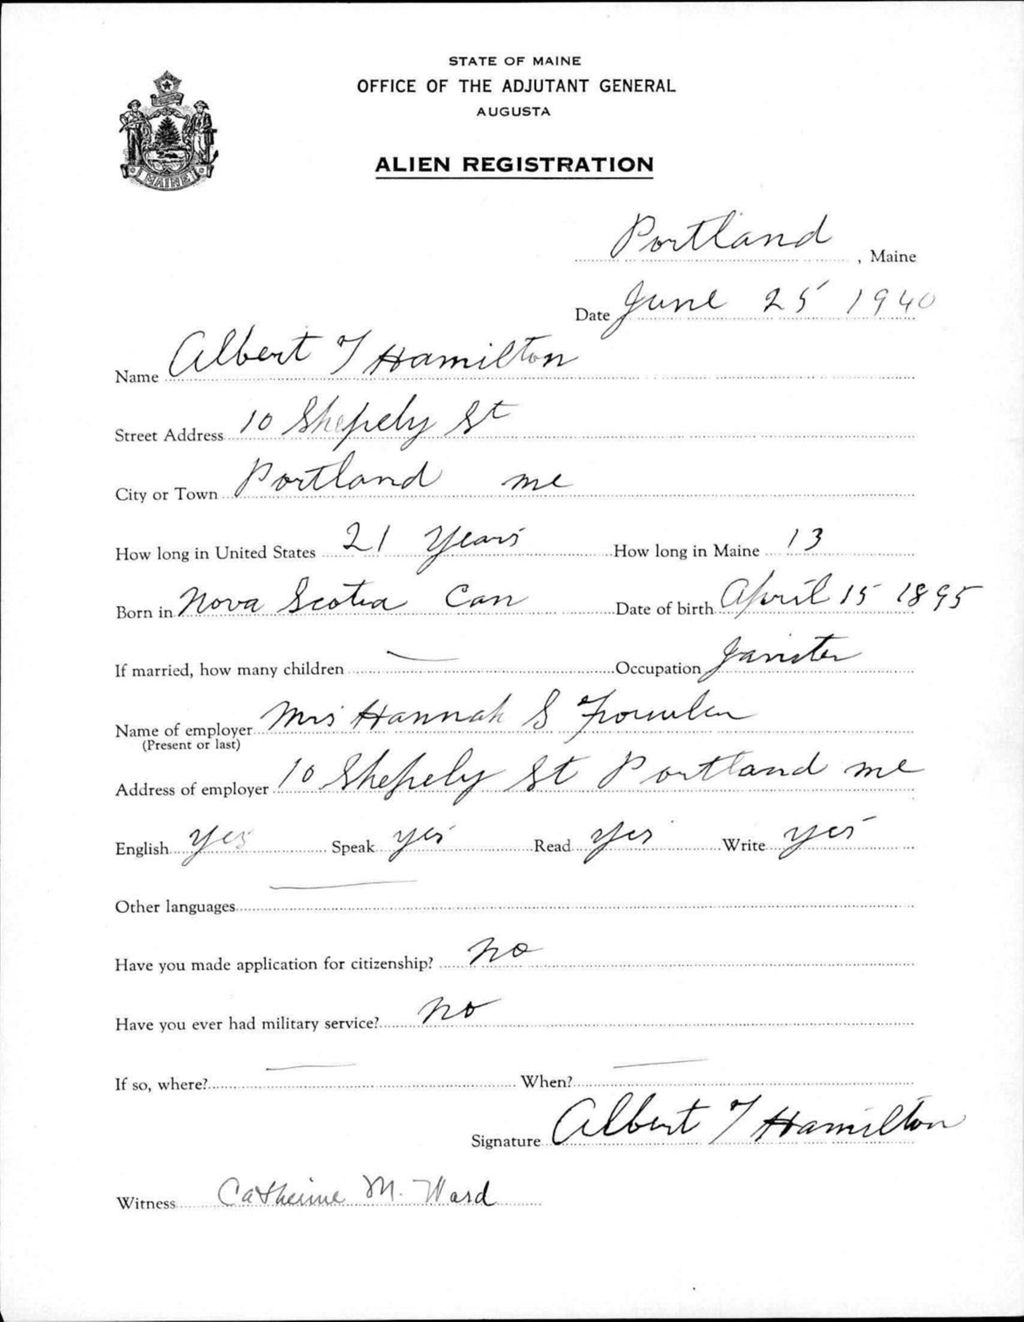 STATE OF MAINE
OFFICE OF THE ADJUTANT GENERAL
AUGUSTA
ALIEN REGISTRATION
MAINE
Portland, Maine
Date June 25 1940
Name Albert T Hamilton
Street Address 10 Shepely St
City or Town Portland me
How long in United States 21 Years How long in Maine 13
Born in Nova Scotia Can Date of birth April 15 1895
If married, how many children — Occupation Janitor
Name of employer Mrs Hannah S
(Present or last)
Address of employer 10 Shepely St Portland me
English yes Speak yes Read yes Write yes
Other languages —
Have you made application for citizenship? no
Have you ever had military service? no
If so, where? — When? —
Signature Albert T Hamilton
Witness Catherine M. Ward